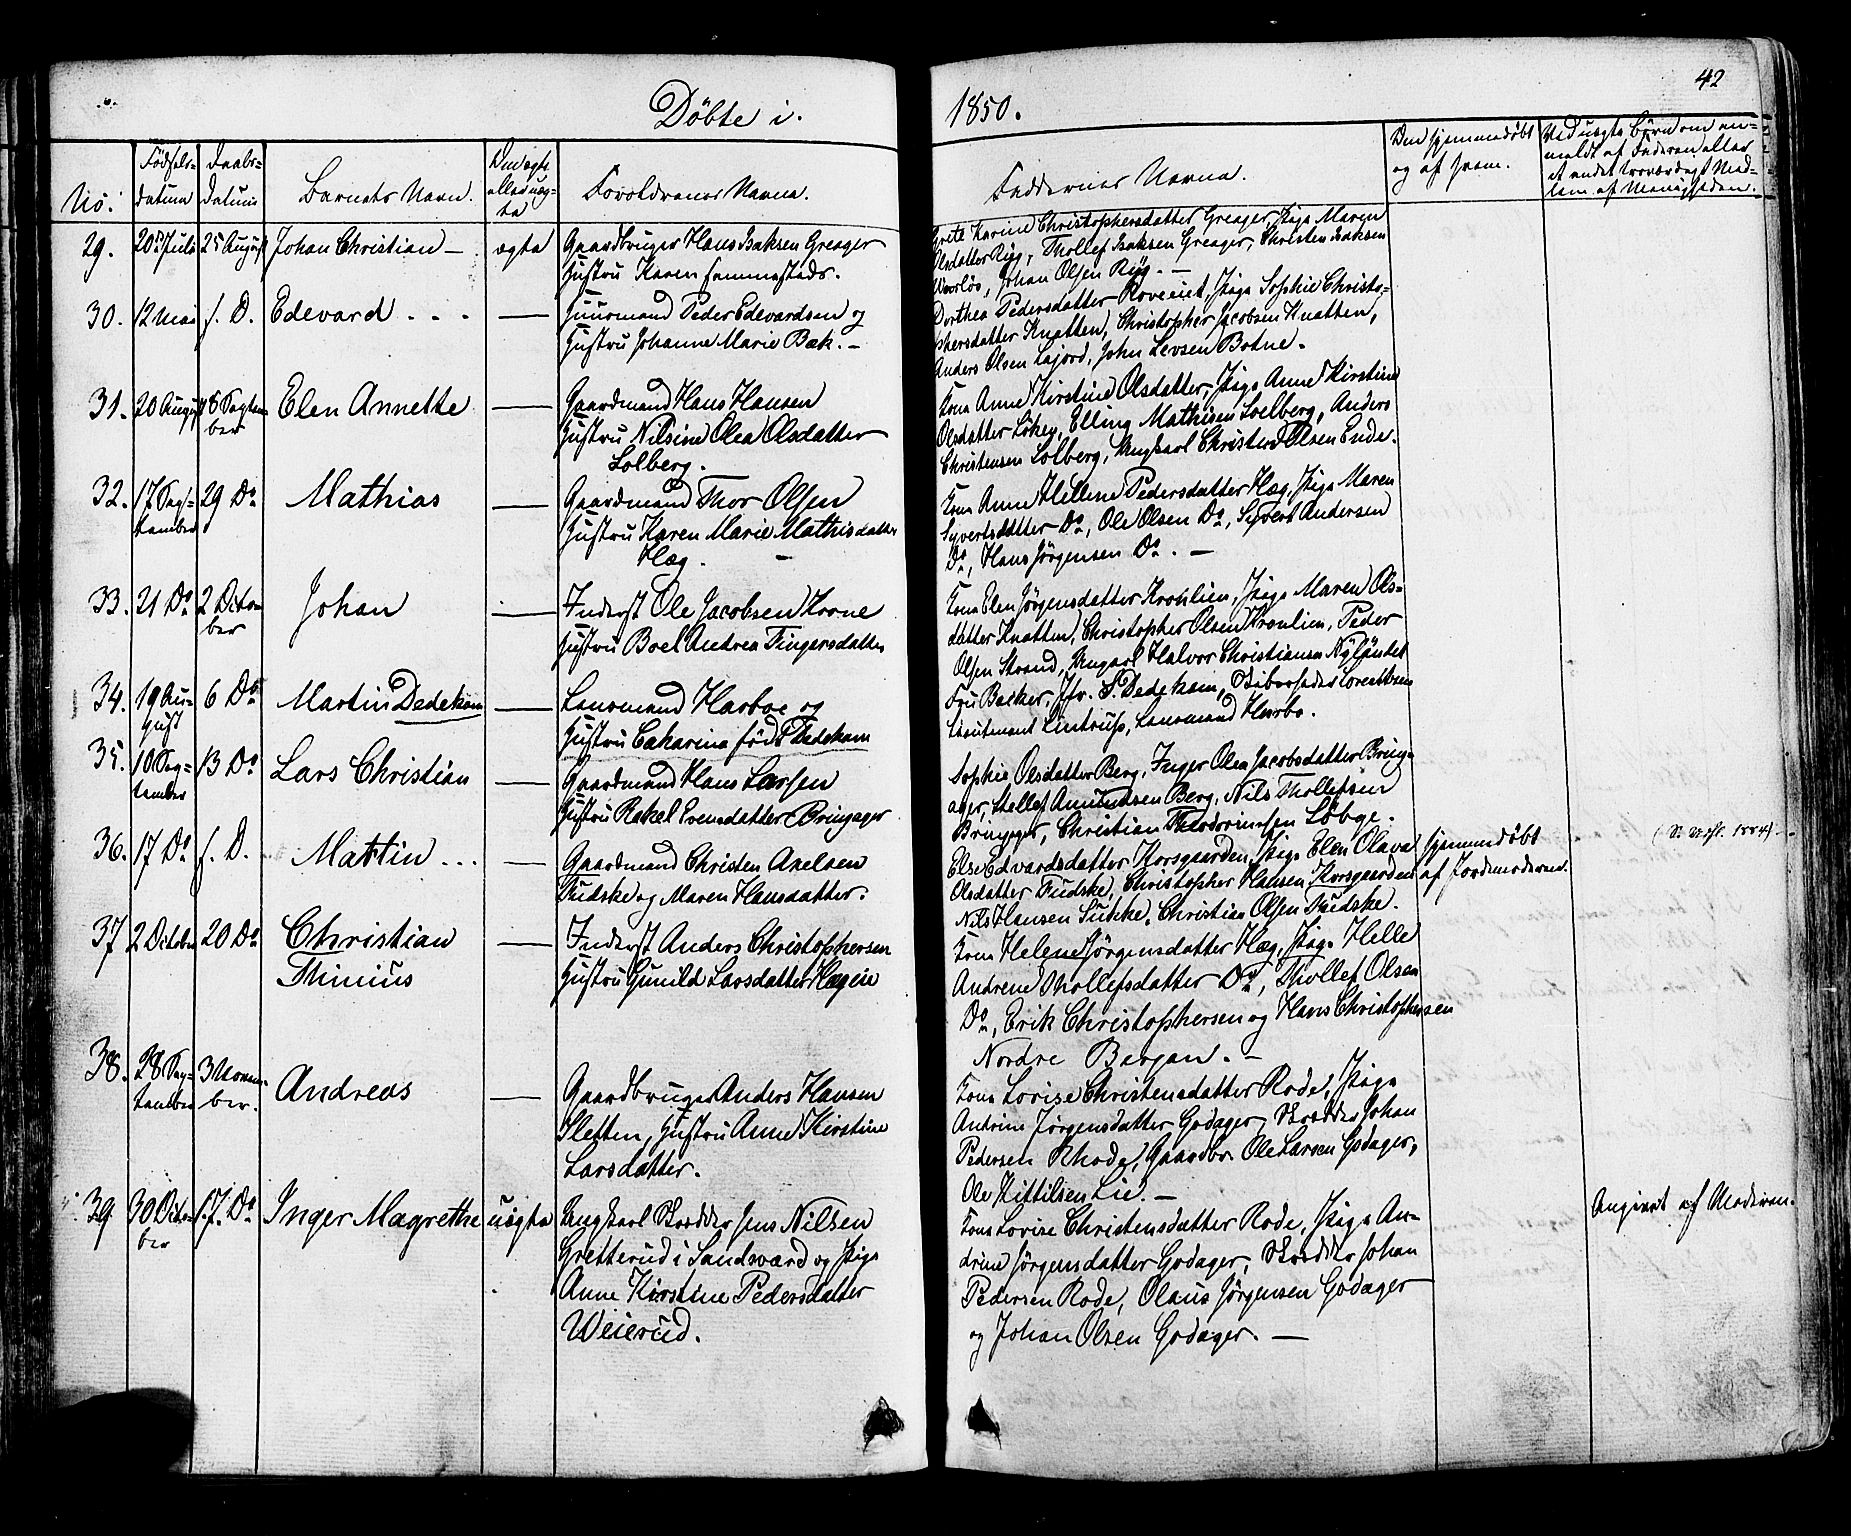 42
Døbte i. 1850.
No.
Fødsels-
datum
Daabs-
datum
Barnets Navn.
Om ægte
eller uæg-
te
Forældrenes Navne.
Faddernes Navne.
Om hjemmedøbt
og af hvem.
Ved uægte Børn om an-
meldt af Faderen eller
et andet troværdigt Med-
lem af Menigheden.
29. 20de Juli 25 August Johan Christian — ægte
Gaardbruger Hans Isaksen Greager
Hustru Karen Femmestads.
Grete Karine Christophersdatter Greager, Pige Maren
Olsdatter Ryg, Thollef Isaksen Greager, Christen Isaksen
Johan Olsen Ryg. —
30. 12 Mai s. D. Edevard . . . —
Huusmand Peder Edevardsen og
Hustru Johanne Marie Bak. —
Dorthea Pedersdatter Pige Sophie Christo-
phersdatter Knatten, Christopher Jacobsen Knatten,
Anders Olsen Lajord, John Levsen Botne.
31. 20 August 18 Septem-
ber
Elen Annette —
Gaardmand Hans Hansen
Hustru Nilsine Olea Olsdatter
Solberg.
Kone Anne Kirstine Olsdatter, Pige Anne Kirstine
Olsdatter Løken, Elling Mathisen Solberg, Anders
Christensen Solberg, Ungkarl Christen Olsen Ende.
32. 17 Sep-
tember
29 Do Mathias —
Gaardmand Thor Olsen
Hustru Karen Marie Mathisdatter
Hæg. —
Kone Anne Hellene Pedersdatter Hæg, Pige Maren
Syvertsdatter Do, Ole Olsen Do, Syvert Andersen
Do, Hans Jørgensen Do. —
33. 21 Do 2 Octo-
ber
Johan —
Inderst Ole Jacobsen Krone
Hustru Boel Andrea Fingersdatter
Kone Elen Jørgensdatter Kronlien, Pige Maren Ols-
datter Knatten, Christopher Olsen Kronlien, Peder
Olsen Strand, Ungkarl Halvor Christiansen Nyløndet
34. 19 Au-
gust
6 Do Martin Dedekam —
Lensmand Harboe og
Hustru Catharina født Dedekam
Fru Backer, Jfr. S. Dedekam, Lorentsen
Lieutenant Lintrup, Lensmand Harbo.
35. 10 Sep-
tember
13 Do Lars Christian —
Gaardmand Hans Larsen
Hustru Rakel Evensdatter Bringager
Sophie Olsdatter Berg, Inger Olea Jacobsdatter Bring-
ager, Stellef Amundsen Berg, Nils Thollefsen
Bringager, Christian Løbge.
36. 17 Do s. D. Martin . . . —
Gaardmand Christen Axelsen
Fudske og Maren Hansdatter.
Else Edvardsdatter Korsgaarden, Pige Elen Olava
Olsdatter Fudske, Christopher Hansen Korsgaarden
Nils Hansen Christian Olsen Fudske.
hjemmedøbt
af Jordmoderen.
37 2 October 20 Do Christian
Thinius
—
Inderst Anders Christophersen
Hustru Gunild Larsdatter Hægeie
Kone Helene Jørgensdatter Hæg, Pige Helle
Andrene Thollefsdatter Do, Thollef Olsen
Do, Erik Christophersen og Hans Christophersen
Nordre Bergan. —
38. 28 Sep-
tember
3 Novem-
ber.
Andreas —
Gaardbruger Anders Hansen
Sletten, Hustru Anne Kirstine
Larsdatter.
Kone Lovise Christensdatter Rode, Pige
Andrine Jørgensdatter Godager, Skrædder Johan
Pedersen Rhode, Gaardbr. Ole Larsen Godager,
Ole Kittilsen Lie. —
39 30 Octo-
ber
17. Do Inger Magrethe uægte
Ungkarl Skrædder Jens Nilsen
Gretterud i Sandsværd og Pige
Anne Kirstine Pedersdatter
Weierud.
Kone Lovise Christensdatter Rode, Pige An-
drine Jørgensdatter Godager, Skrædder Johan
Pedersen Rode, Olaus Jørgensen Godager
og Johan Olsen Godager. —
Angivet af Moderen.